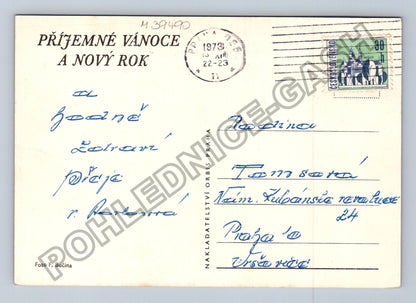 M39490
PŘÍJEMNÉ VÁNOCE
A NOVÝ ROK
PRAHA
1973
22-23
11
80
h
ČESKOSLOVENSKO
a
hodně
zdraví
přeje
r.
Rodina
Nám. Kubánské revoluce
24
Praha 10
Vršovice
NAKLADATELSTVÍ ORBIS PRAHA
Foto F. Bočina
POHLEDNICE-GACH